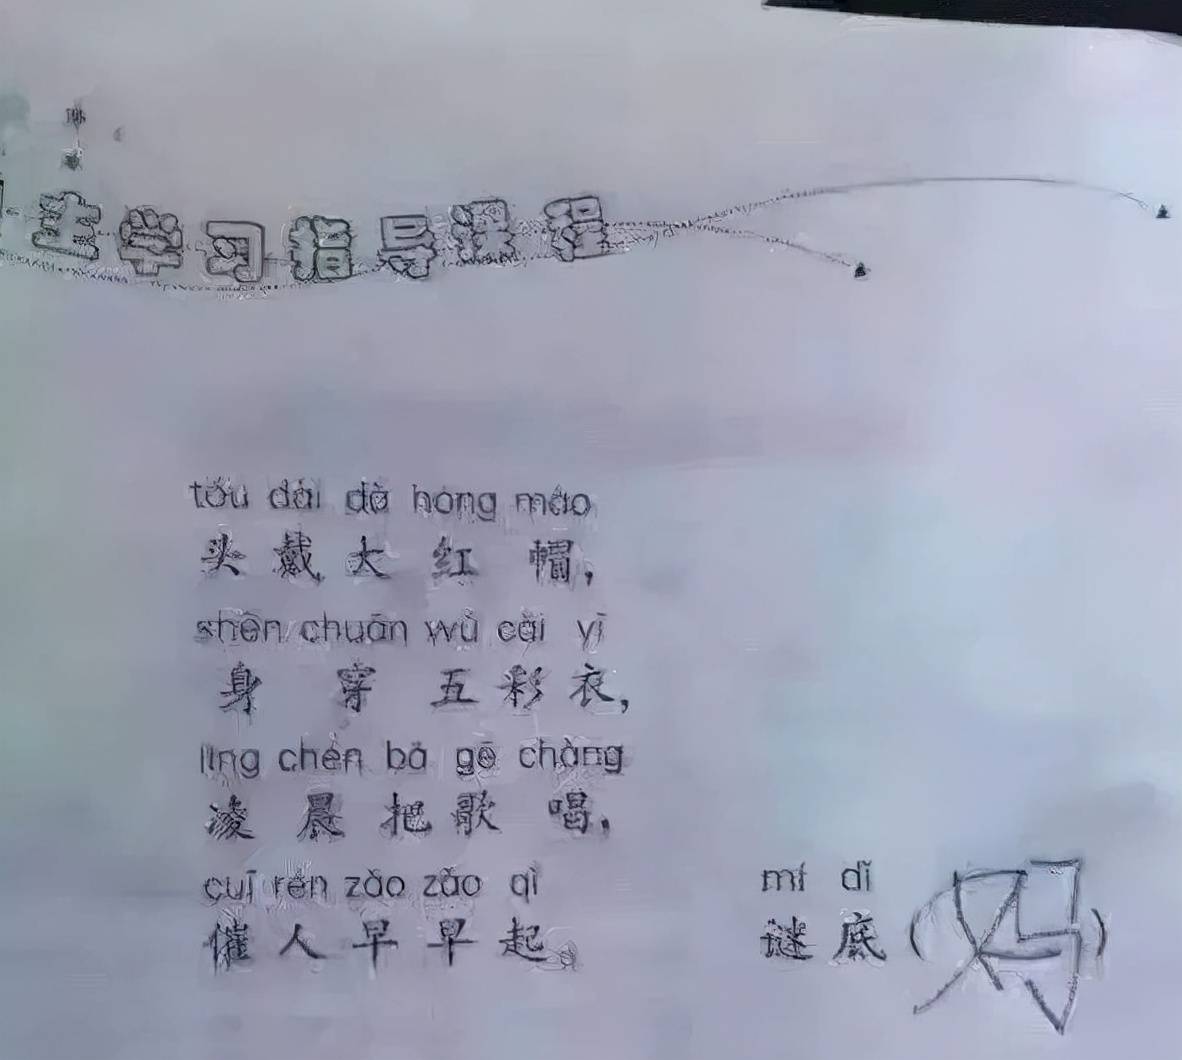 生学习指导课程
tóu dài dà hóng mào
头戴大红帽，
shēn chuān wǔ cǎi yī
身穿五彩衣，
líng chén bǎ gē chàng
凌晨把歌唱，
cuī rén zǎo zǎo qǐ
催人早早起。
mí dǐ
谜底（鸡）